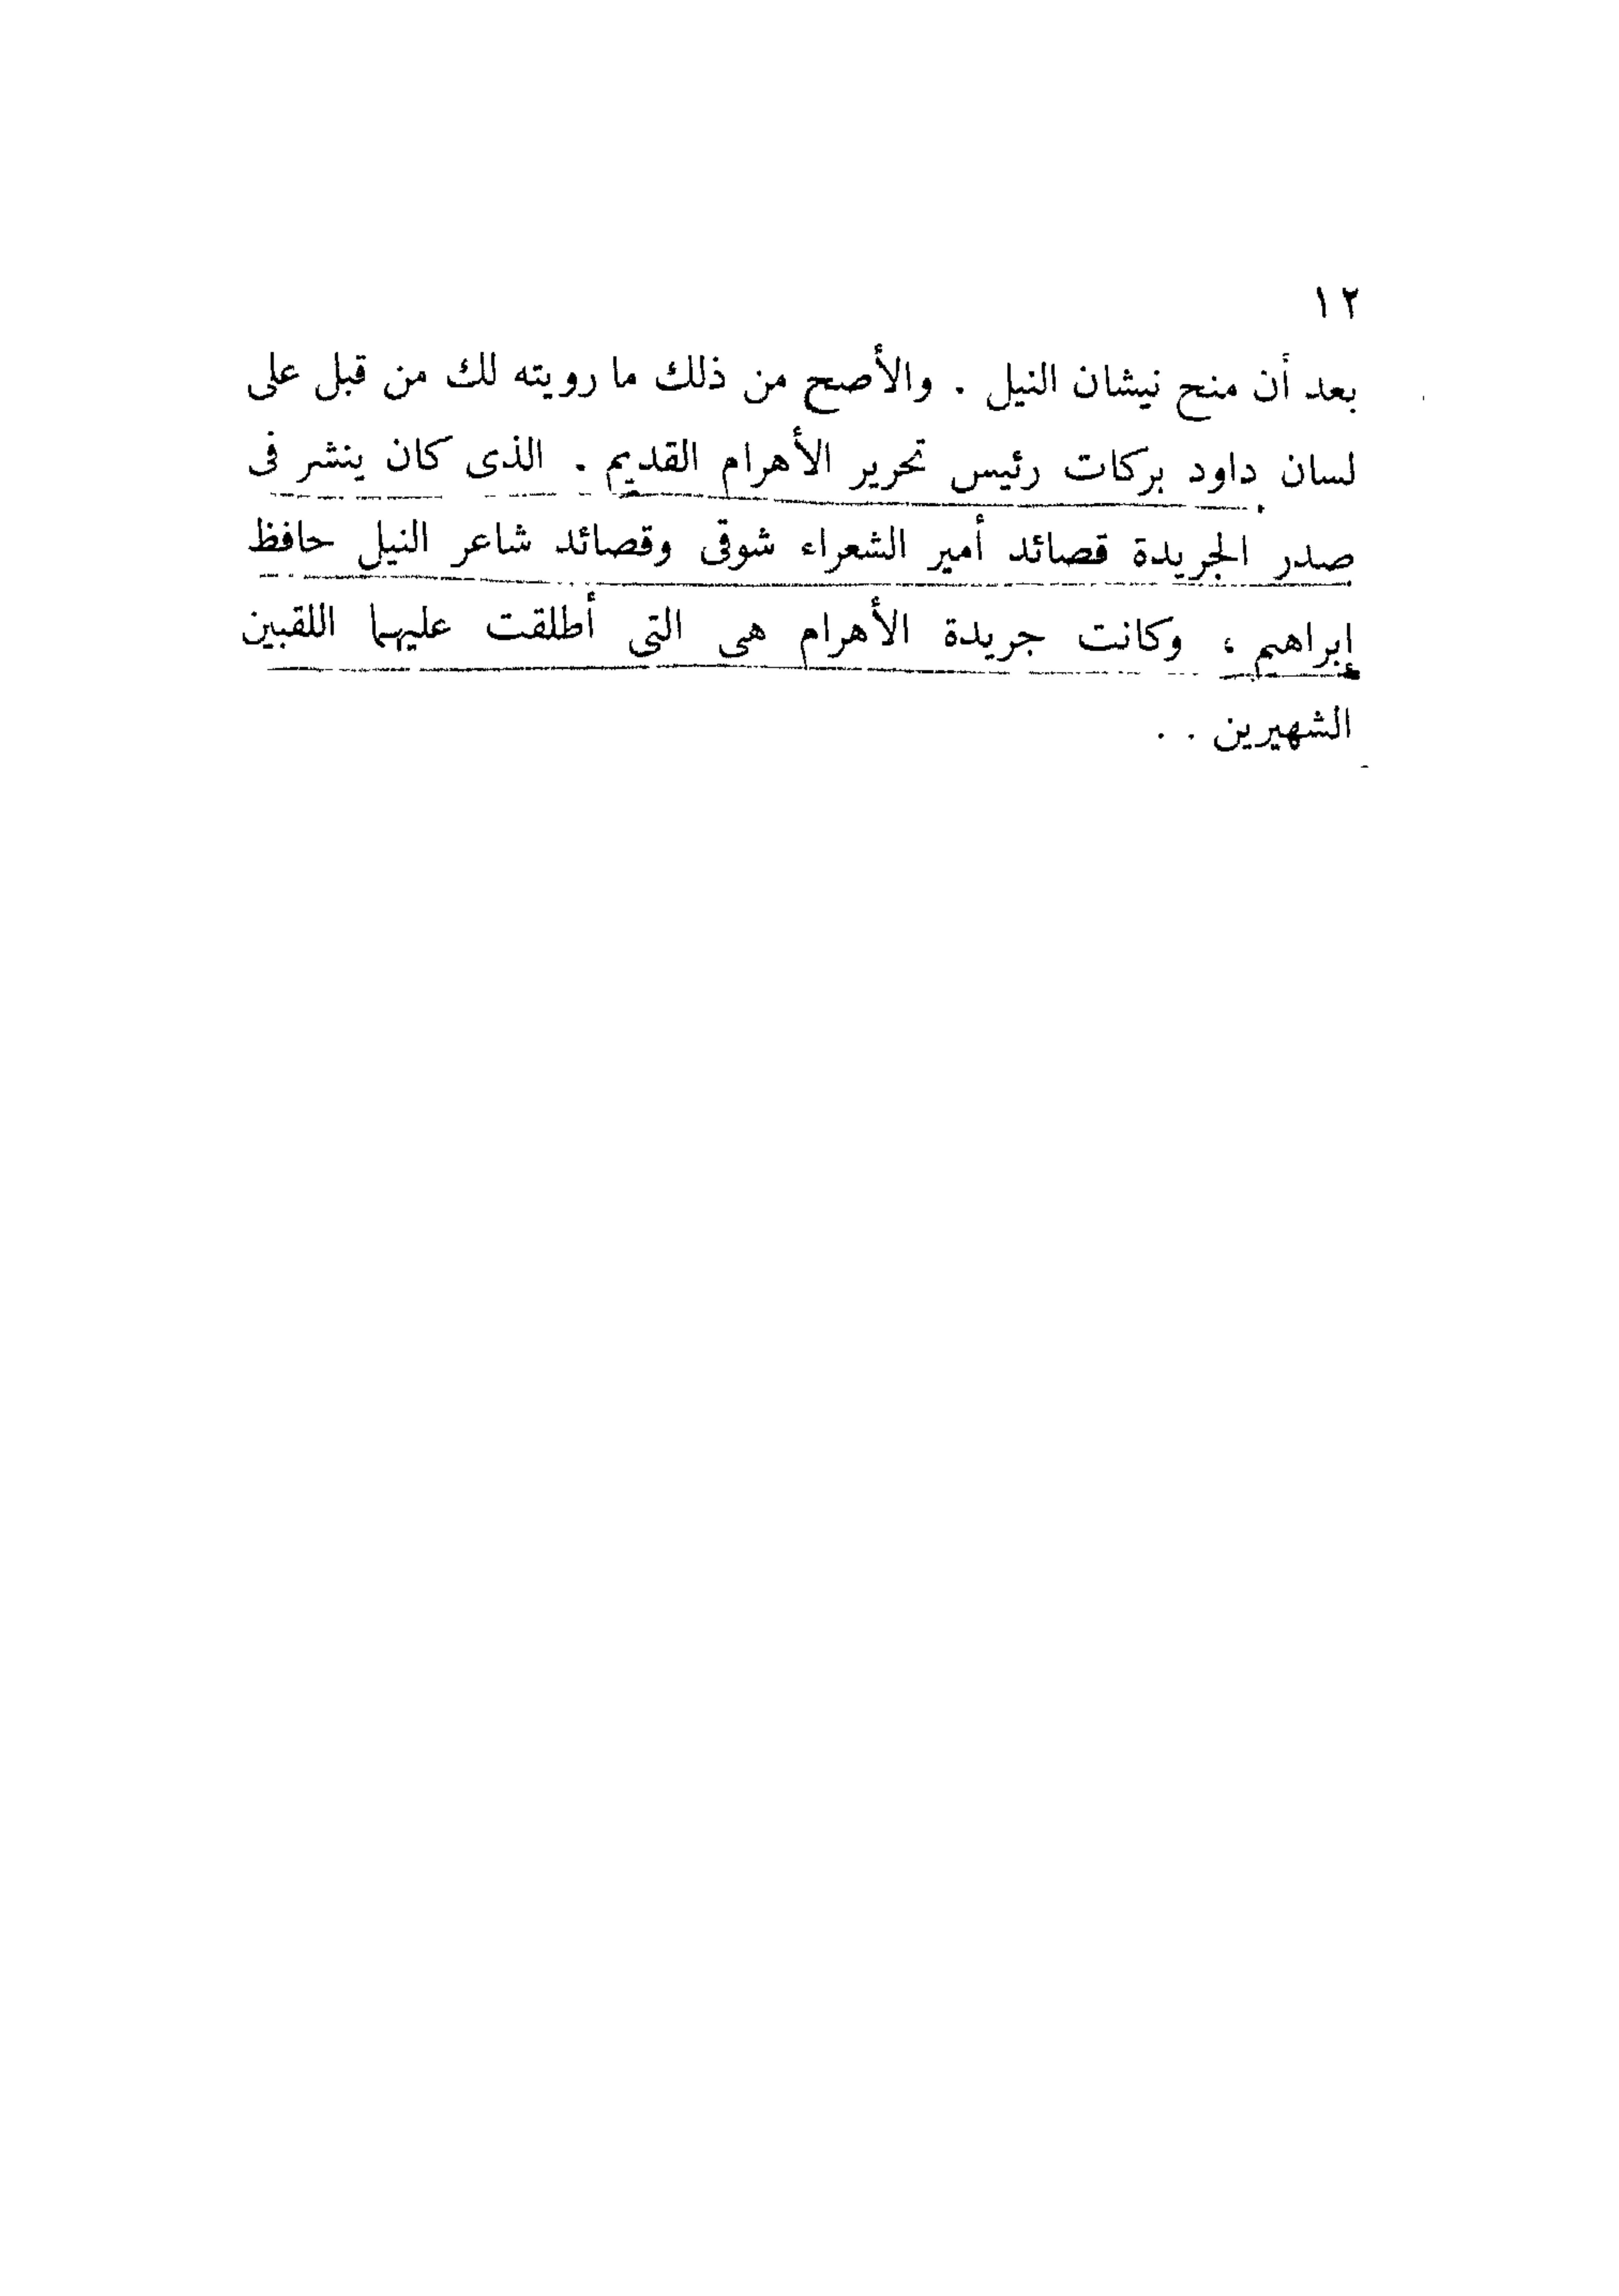 ١٢
بعد أن منح نيشان النيل . والأصح من ذلك ما رويته لك من قبل على
لسان داود بركات رئيس تحرير الأهرام القديم . الذى كان ينشر فى
صدر الجريدة قصائد أمير الشعراء شوقى وقصائد شاعر النيل حافظ
إبراهيم ، وكانت جريدة الأهرام هى التى أطلقت عليهما اللقبين
الشهيرين . .